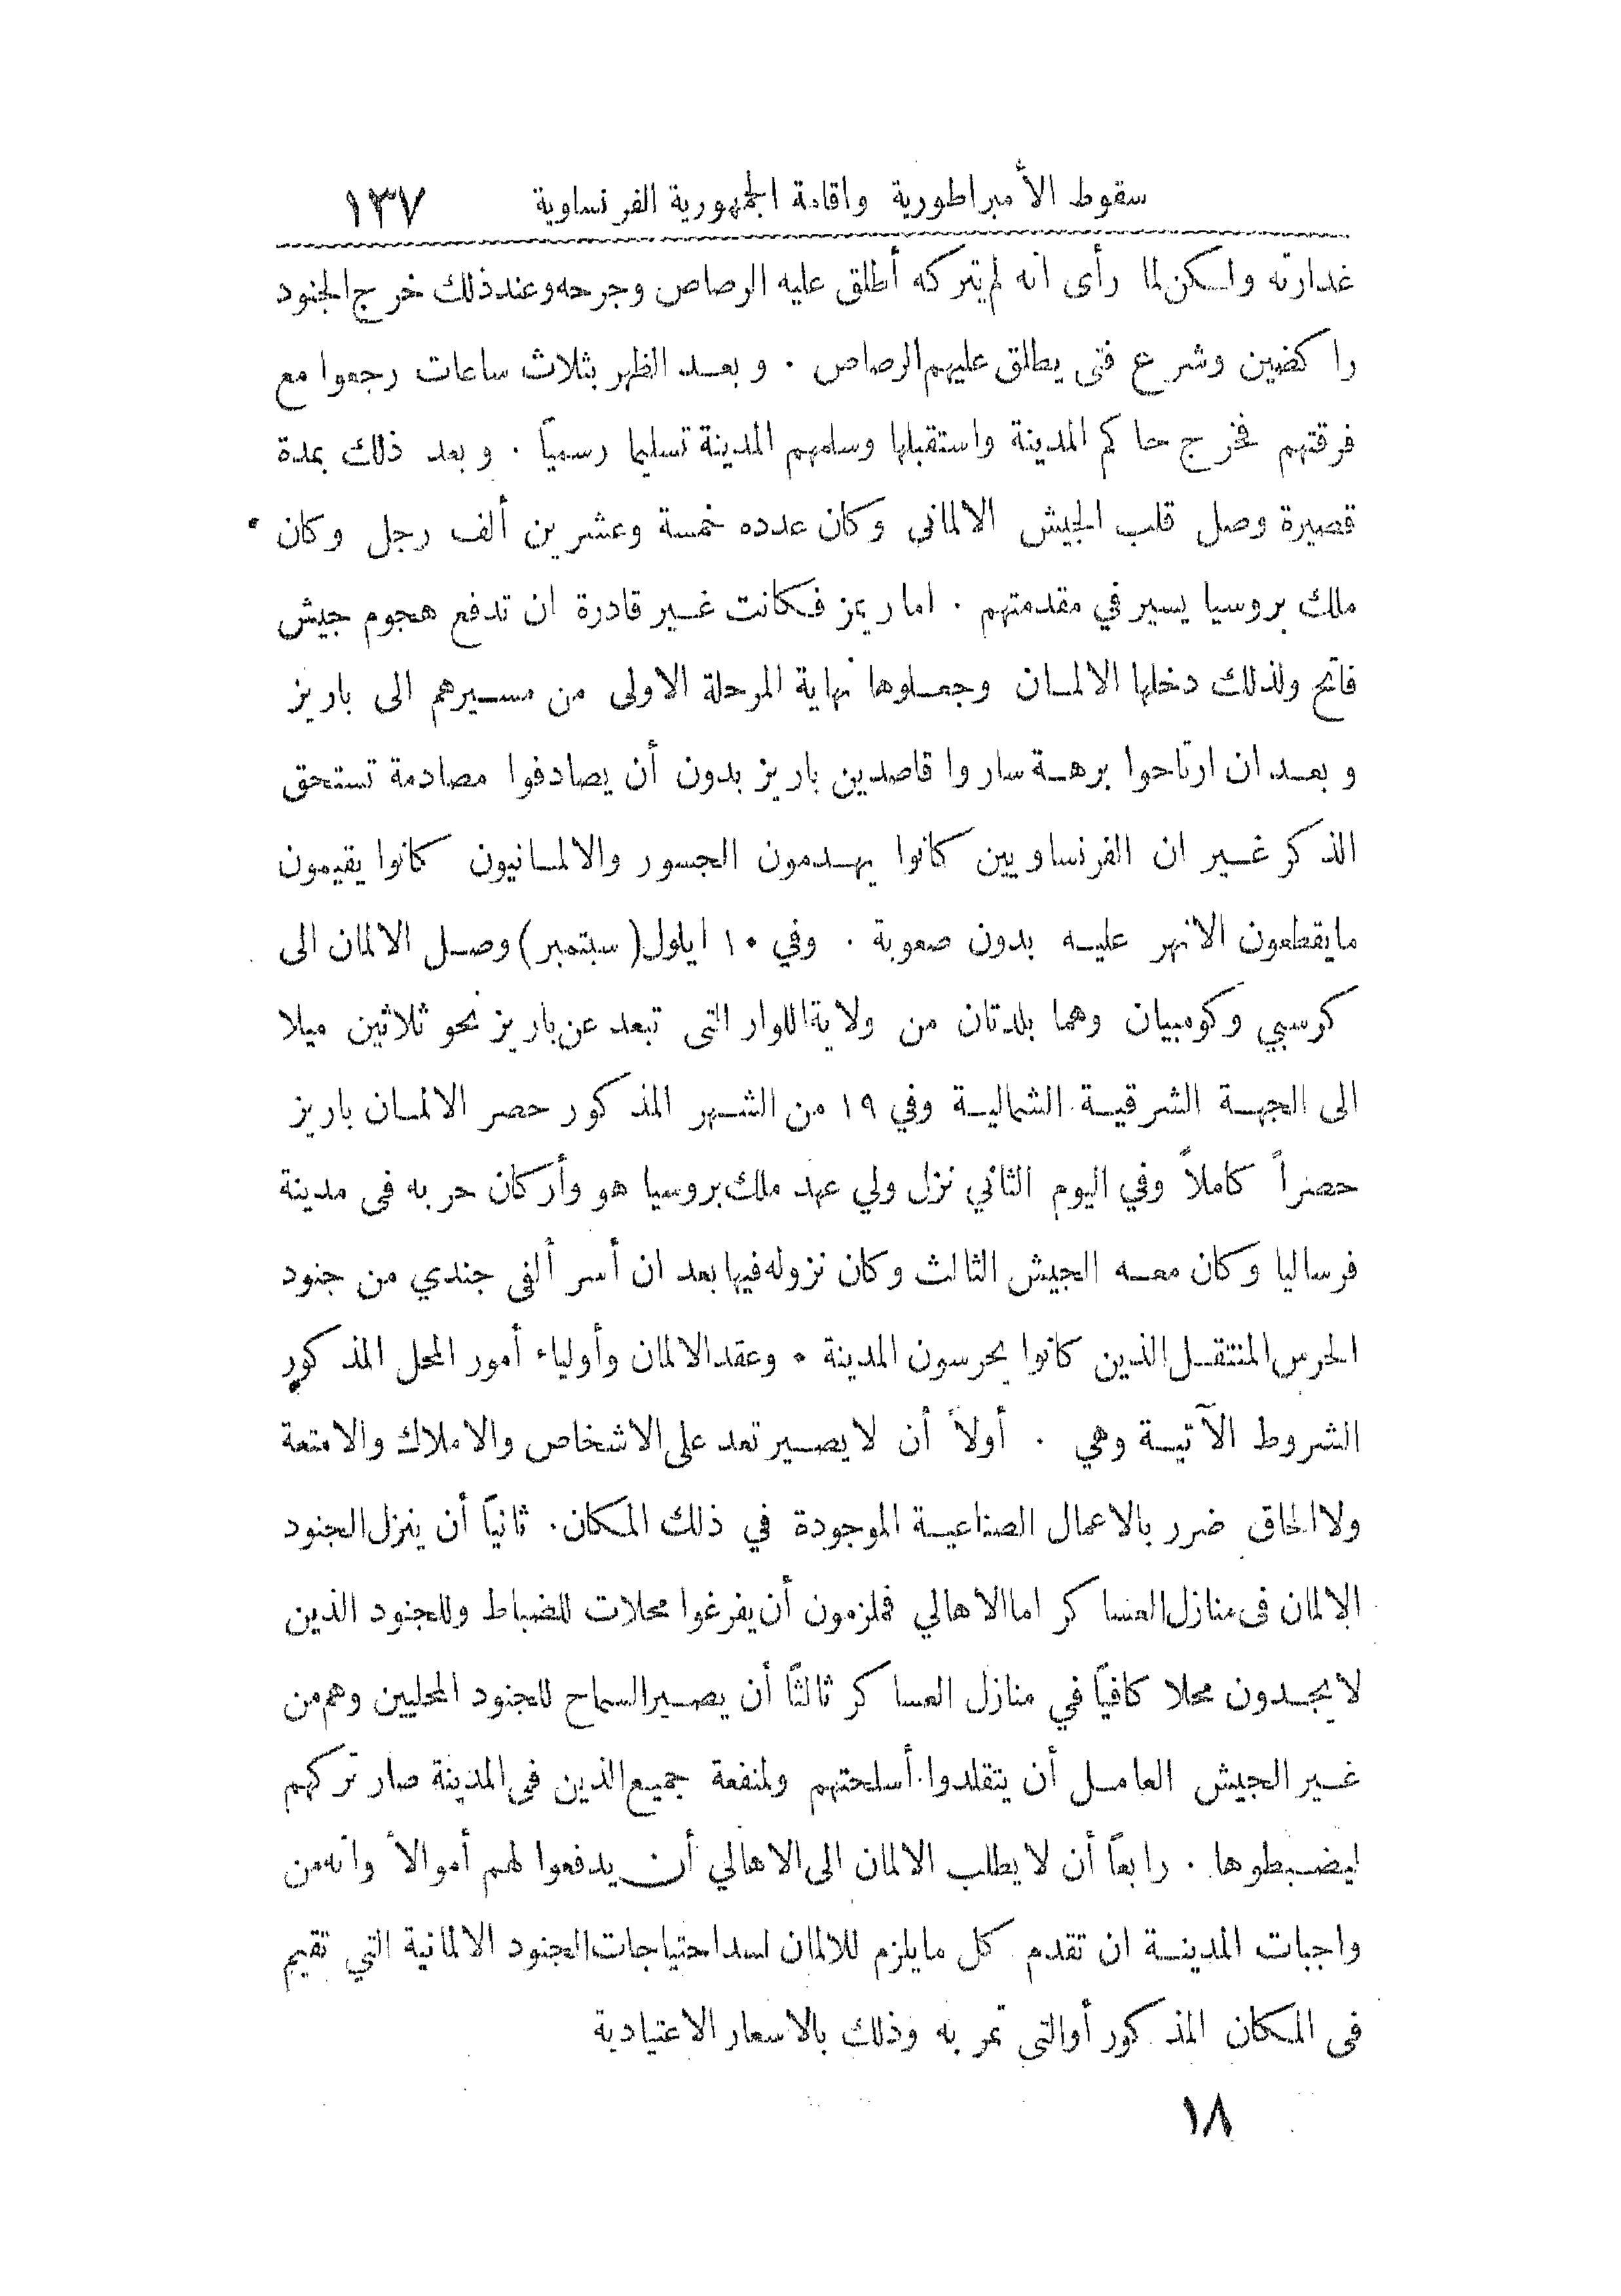 سقوط الأمبراطورية واقامة الجمهورية الفرنساوية ١٣٧
غدارته ولكن لما رأى انه لم يتركه أطلق عليه الرصاص وجرحه وعند ذلك خرج الجنود
راكضين وشرع فتى يطلق عليهم الرصاص . وبعد الظهر بثلاث ساعات رجعوا مع
فرقتهم فخرج حاكم المدينة واستقبلها وسلمهم المدينة تسليما رسمياً . وبعد ذلك بمدة
قصيرة وصل قلب الجيش الالمانى وكان عدده خمسة وعشرين ألف رجل وكان
ملك بروسيا يسير في مقدمتهم . اما ريمز فكانت غير قادرة ان تدفع هجوم جيش
فاتح ولذلك دخلها الالمان وجعلوها نهاية المرحلة الاولى من مسيرهم الى باريز
وبعد ان ارتاحوا برهة ساروا قاصدين باريز بدون أن يصادفوا مصادمة تستحق
الذكر غير ان الفرنساويين كانوا يهدمون الجسور والالمانيون كانوا يقيمون
مايقطعون الانهر عليه بدون صعوبة . وفي ١٠ ايلول (سبتمبر) وصل الالمان الى
كرسبي وكومبيان وهما بلدتان من ولاية اللوار التى تبعد عن باريز نحو ثلاثين ميلا
الى الجهة الشرقية الشمالية وفي ١٩ من الشهر المذكور حصر الالمان باريز
حصراً كاملاً وفي اليوم الثاني نزل ولي عهد ملك بروسيا هو وأركان حربه فى مدينة
فرساليا وكان معه الجيش الثالث وكان نزوله فيها بعد ان أسر ألفى جندي من جنود
الحرس المنتقل الذين كانوا يحرسون المدينة . وعقد الالمان وأولياء أمور المحل المذكور
الشروط الآتية وهي . أولاً أن لايصير تعد على الاشخاص والاملاك والامتعة
ولا الحاق ضرر بالاعمال الصناعية الموجودة في ذلك المكان . ثانياً أن ينزل الجنود
الالمان فى منازل العساكر اما الاهالي فملزمون أن يفرغوا محلات للضباط وللجنود الذين
لايجدون محلا كافياً في منازل العساكر ثالثاً أن يصير السماح للجنود المحليين وهم من
غير الجيش العامل أن يتقلدوا أسلحتهم ولمنفعة جميع الذين فى المدينة صار تركهم
ليضبطوها . رابعاً أن لا يطلب الالمان الى الاهالي أن يدفعوا لهم أموالاً وانه من
واجبات المدينة ان تقدم كل مايلزم للالمان لسد احتياجات الجنود الالمانية التي تقيم
فى المكان المذكور أو التى تمر به وذلك بالاسعار الاعتيادية
١٨